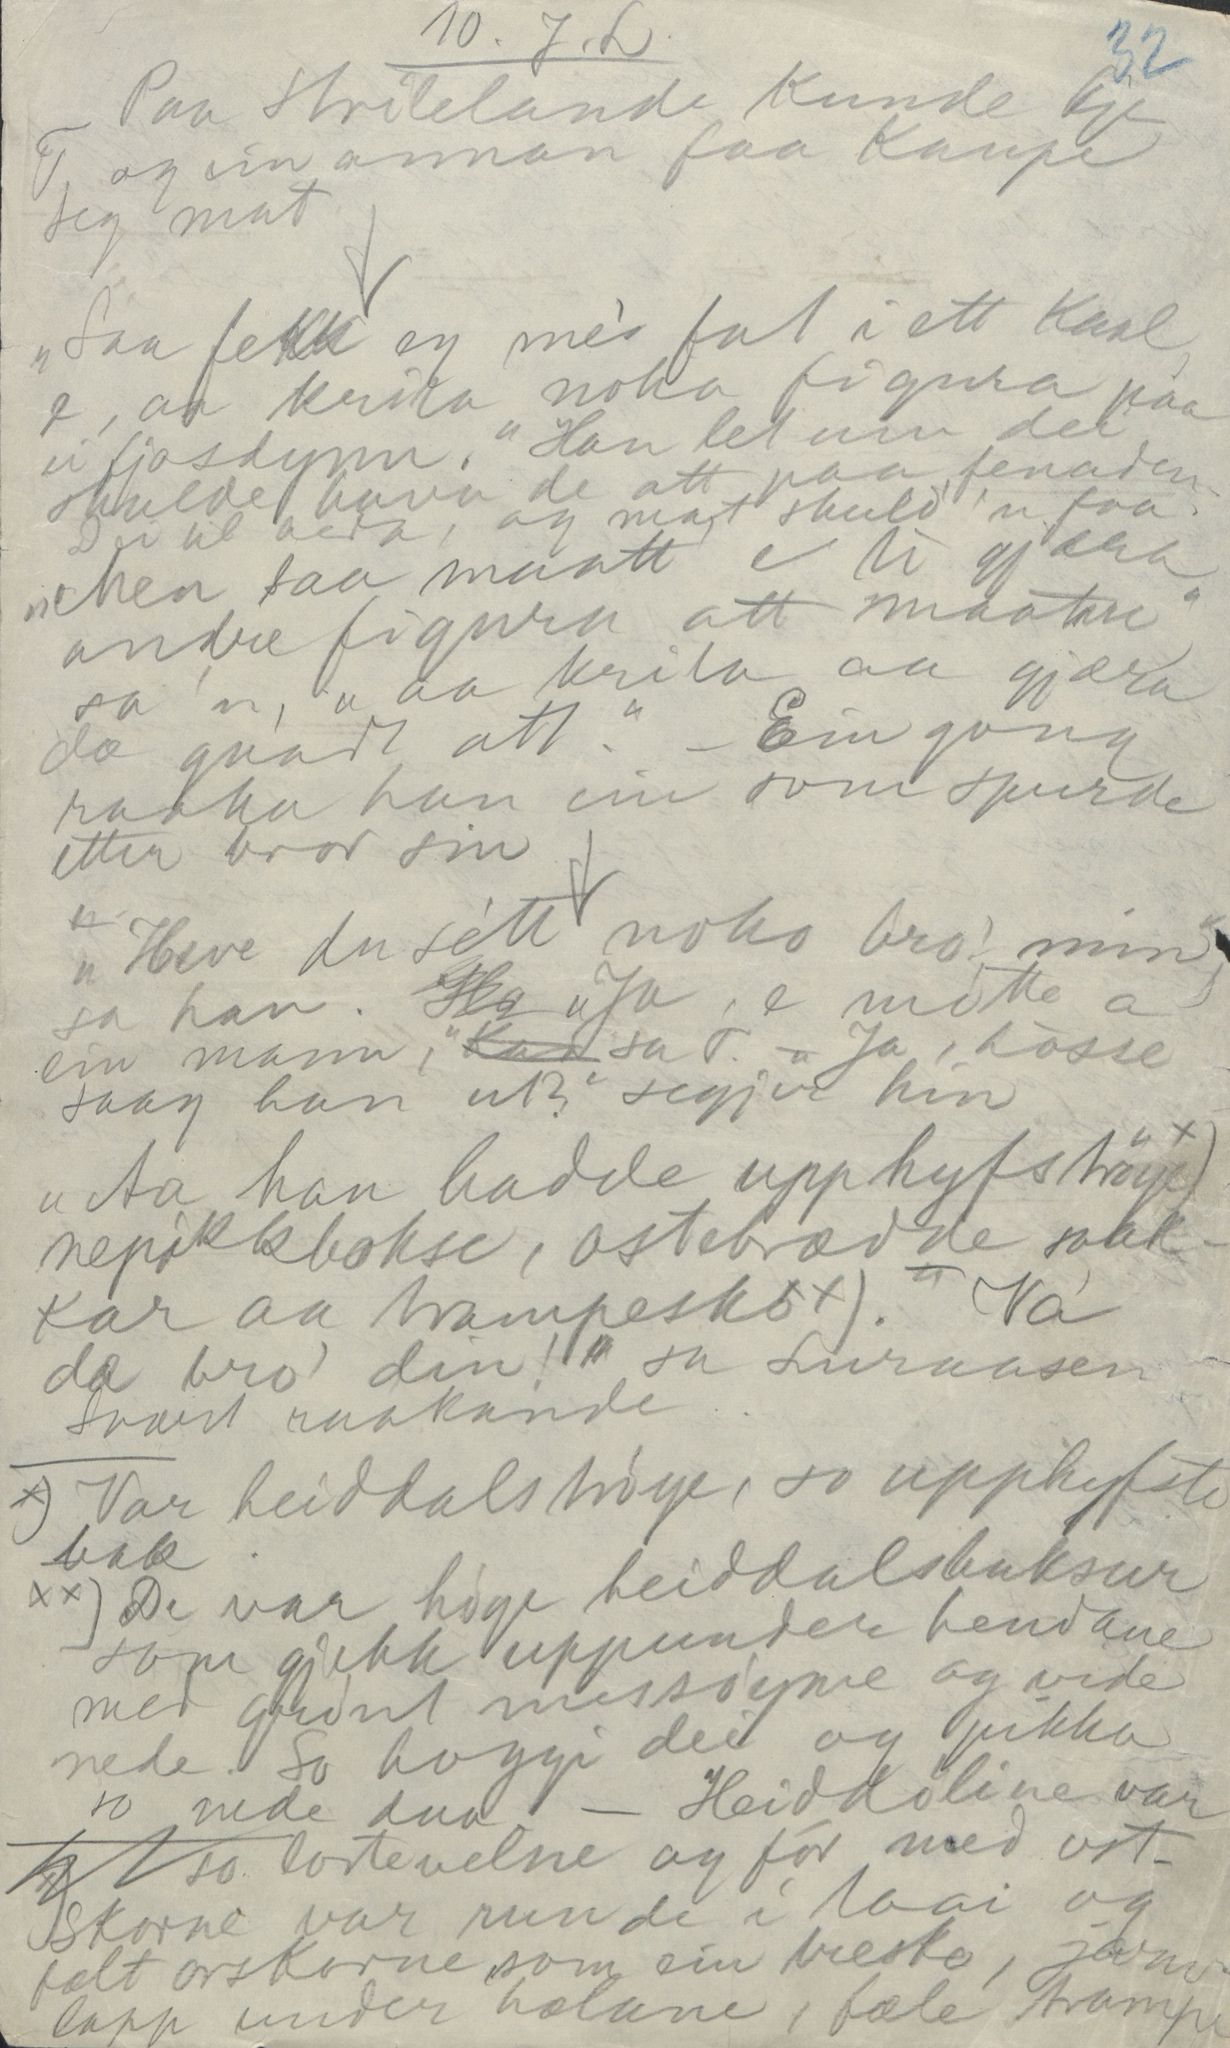 10. J. L.
32
Paa Strilelande kunde ikje
T. og ein annan faa kaupe
seg mat
"Saa fekk eg mé's fat i ett kaal,
e, aa krita noka figura paa
ei fjosdynn." Han let um dei
skulde hava de att paa fenaden.
Dei vil veta, og mat skuld'n faa.
"Men saa maatt e te gjæra
andre figura att maatne"
sa'n, "aa krita aa gjæra
dæ gvadt att." – Ein gong
raaka han ein som spurde
etter bror sin
"Heve du sétt noko bro' min",
sa han. "Ja, e møtte a
ein mann," sa T. – "Ja, hosse
saag han ut?" segjer hin
"Aa han hadde upphyfstrøye x)
nepikkbokse, ostebrædde sokk-
kar aa trampesko xx)." "Va
dæ bro' din!" sa Luraasen
Svært raakande.
x) Var heiddalstrøye, so upphyfste
bak.
xx) De var høge heiddalsbuksur
som gjekk uppunder hendane
med grønt messøyme og vide
nede. So hoggi dei og pikka
so nede daa. – Heiddøline var
so lortevelne og fór med ost-
Skorne var runde i taai og
tælt orskorne som ein tresko, jarn-
lapp under hælane, fæle trampe